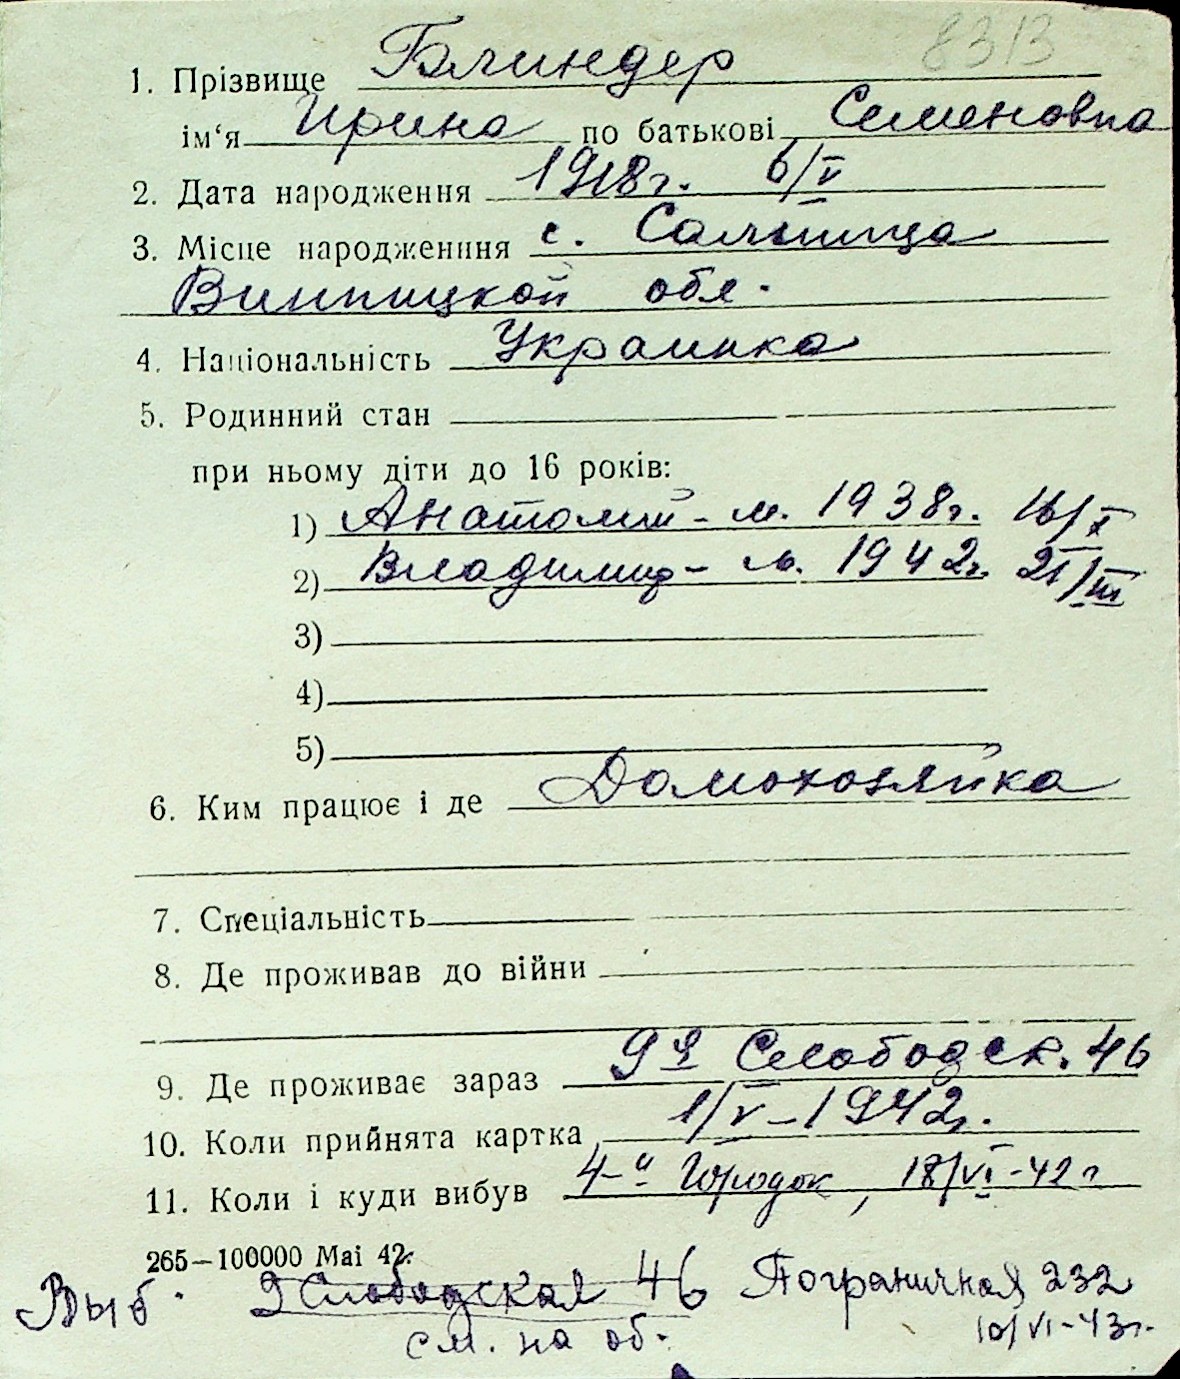 8313
1. Прізвище Блиндер
ім‘я Ирина по батькові Семеновна
2. Дата народження 1918 г. 6/V
3. Місце народженння с. Сальница
Винницкой обл.
4. Національність Украинка
5. Родинний стан
при ньому діти до 16 років:
1) Анатолий - м. 1938г. 16/X
2) Владимир - м. 1942г. 21/III
3)
4)
5)
6. Ким працює і де Домохозяйка
7. Спеціальність
8. Де проживав до війни
9. Де проживає зараз 9я Слободск. 46
10. Коли прийнята картка 1/V-1942г.
11. Коли і куди вибув 4-й Городок, 18/VI-42 г
265—100000 Маі 42.
Выб. 9 Слободская 46 Пограничная 232
см. на об. 10/VI-43г.